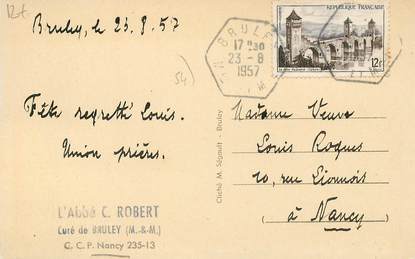 12+
Bruley, le 23.8.57
(54)
BRULEY
17 H 30
23 - 8
1957
RÉPUBLIQUE FRANÇAISE
12F
Fête regretté Louis.
Union prières.
Madame Veuve
Louis Roques
10, rue Lionnois
à Nancy
Cliché M. Ségault - Bruley
L'Abbé C. ROBERT
Curé de BRULEY (M.-&-M.)
C. C. P. Nancy 235-13